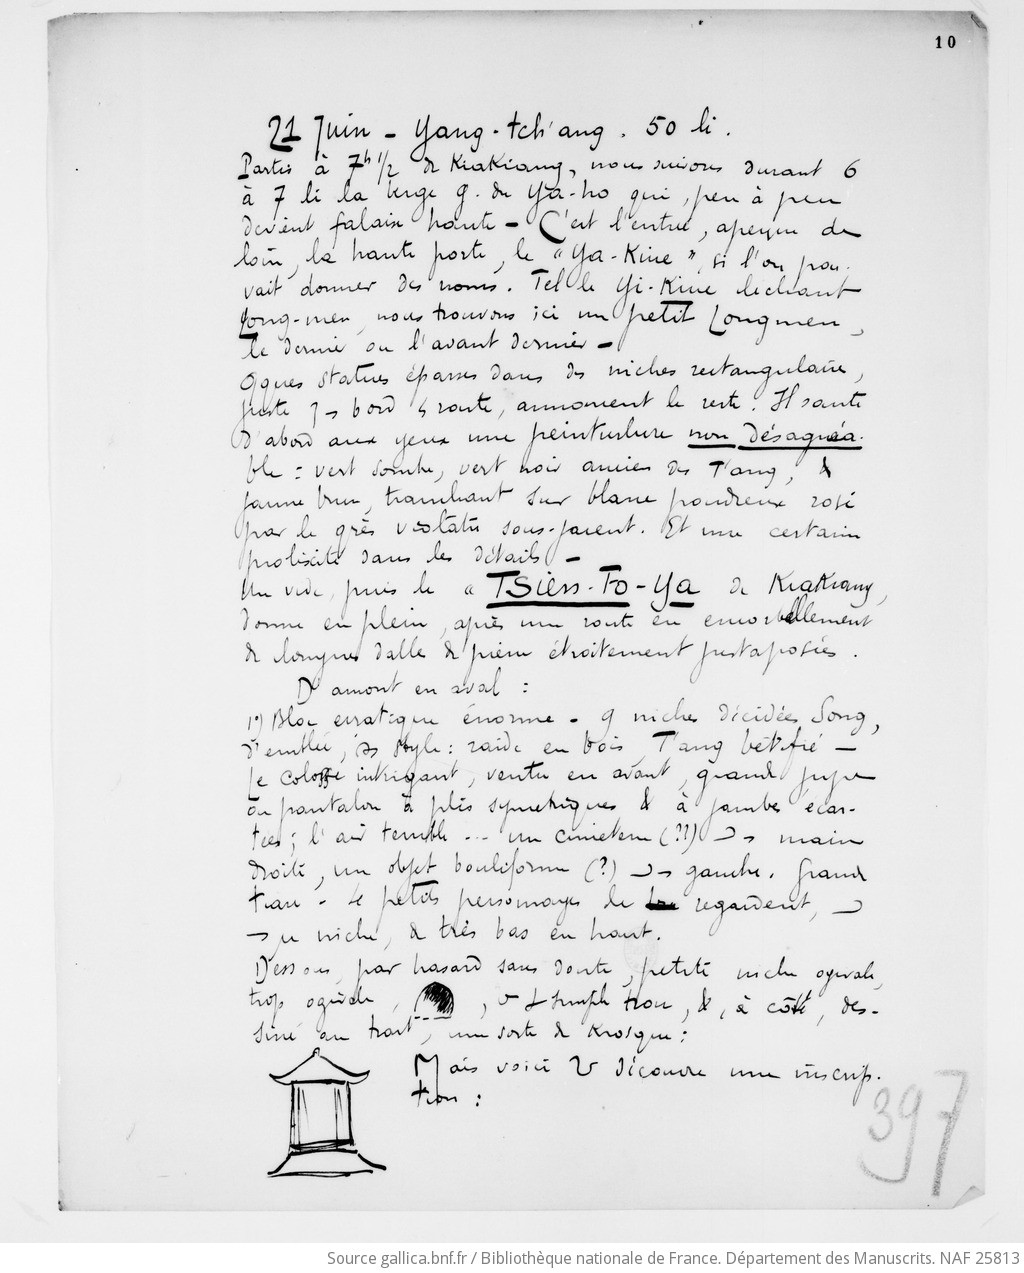 10
21 Juin - Yang-tch'ang. 50 li.
Partis à 7h 1/2 de KiaKiang, nous suivons durant 6
à 7 li la berge g. du Ya-ho qui, peu à peu
devient falaise haute - C'est l'entrée, aperçue de
loin, la haute porte, le "Ya-Kine", si l'on pou-
vait donner des noms. Tel le Yi-Kiue léchant
Long-men, nous trouvons ici un petit Longmen,
le dernier ou l'avant dernier -
Qques statues éparses dans des niches rectangulaires,
juste bord route, annoncent le reste. Il saute
d'abord aux yeux une peinturlure non désagréa-
ble : vert sombre, vert noir ancien des T'ang, &
jaune brun, tranchant sur blanc poudreux rosé
par le grès violâtre sous-jacent. Et une certaine
prolixité dans les détails -
Un vide, puis le "Tsien-Fo-Ya de KiaKiang,
donne en plein, après une route en encorbellement
de longues dalles de pierre étroitement juxtaposées.
D'amont en aval :
1°) Bloc erratique énorme - 9 niches décidées Song,
d'emblée, style : raide en bois, T'ang bêtifié -
Le colosse intrigant, ventre en avant, grande jupe
ou pantalon à plis symétriques & à jambes écar-
tées; l'air terrible ... un cimeterre (??) main
droite, un objet bouliforme (?) gauche. Grand
tiare - 4 petits personnages le regardent,
niche, & très bas en haut.
Dessous, par hasard sans doute, petite niche ogivale,
trop ogivale, , simple trou, &, à côté, des-
siné au trait, une sorte de Kiosque :
Mais voici découvre une inscrip-
tion :
397
Source gallica.bnf.fr / Bibliothèque nationale de France. Département des Manuscrits. NAF 25813